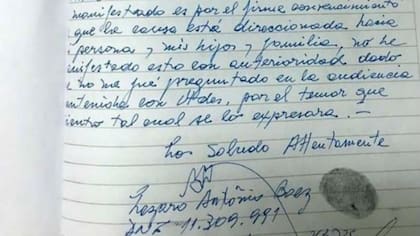 manifestado es por el firme convencimiento
que la causa está direccionada hacia
persona, y mis hijos y familia, no he
nifestado esto con anterioridad dado
no me fué preguntado en la audiencia
antenida con Uds, por el temor que
siento tal cual se los expresara. —
Los Saludo Attentamente
Lazaro Antônio Baez
DNI 11.309.991